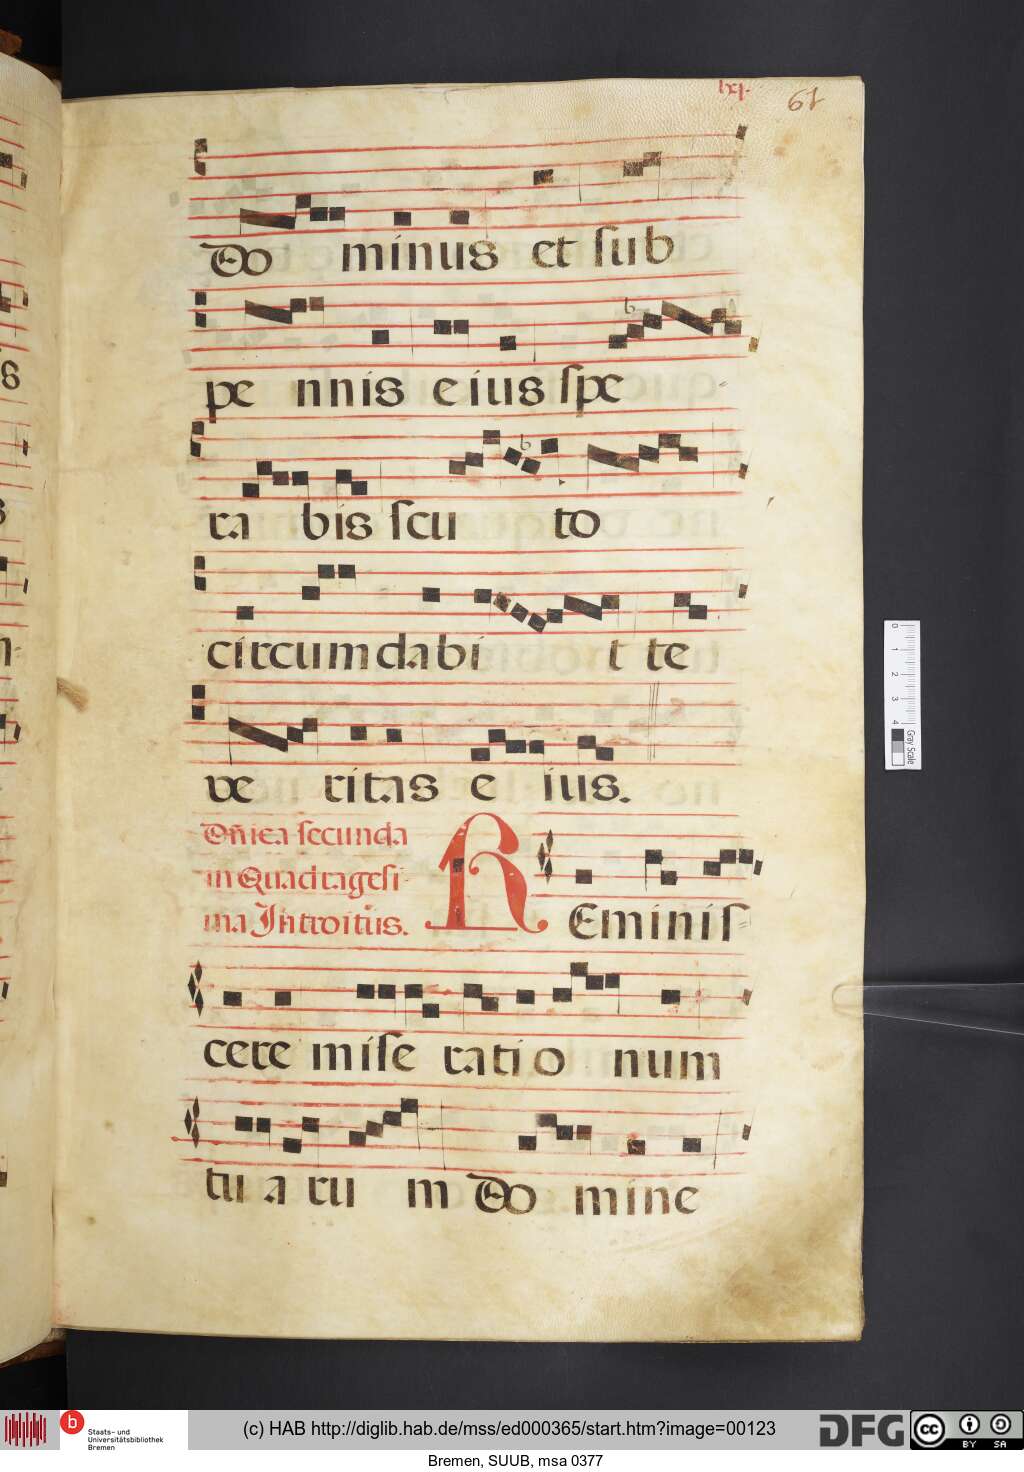 lxj.
61
Do minus et sub
pe nnis eius spe
ra bis scu to
circumdabi t te
ve ritas e ius.
Dñica secunda
in Quadragesi
ma Introitus.
REminis=
cere mise ratio num
tu a ru m Do mine
0 1 2 3 4
Gray Scale
b
Staats- und
Universitätsbibliothek
Bremen
(c) HAB http://diglib.hab.de/mss/ed000365/start.htm?image=00123
DFG
cc BY SA
Bremen, SUUB, msa 0377